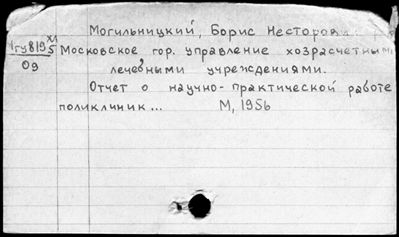 Могильницкий, Борис Несторов
Московское гор. управление хозрасчетными
лечебными учреждениями.
09
Отчет о научно-практической работе
поликлиник... М, 1956